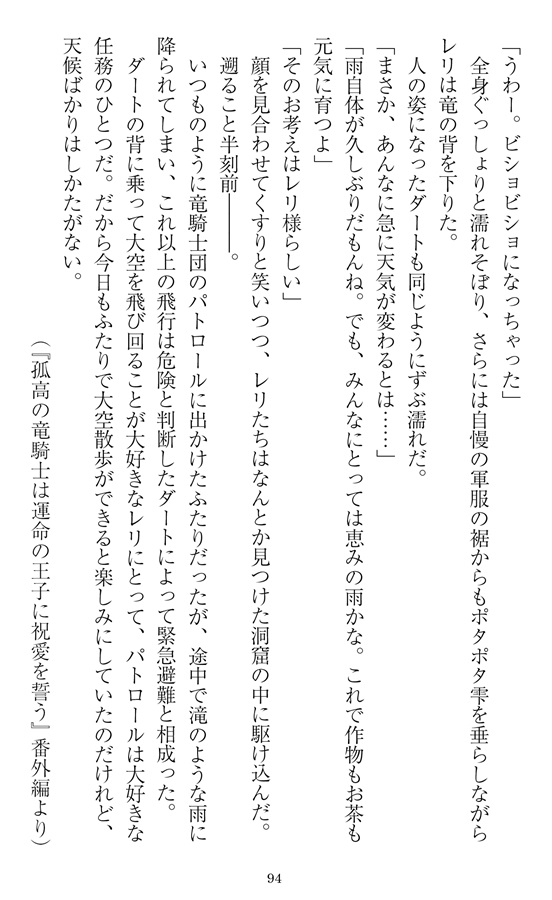 「うわー。ビショビショになっちゃった」
　全身ぐっしょりと濡れそぼり、さらには自慢の軍服の裾からもポタポタ雫を垂らしながら
レリは竜の背を下りた。
　人の姿になったダートも同じようにずぶ濡れだ。
「まさか、あんなに急に天気が変わるとは……」
「雨自体が久しぶりだもんね。でも、みんなにとっては恵みの雨かな。これで作物もお茶も
元気に育つよ」
「そのお考えはレリ様らしい」
　顔を見合わせてくすりと笑いつつ、レリたちはなんとか見つけた洞窟の中に駆け込んだ。
　遡ること半刻前――。
　いつものように竜騎士団のパトロールに出かけたふたりだったが、途中で滝のような雨に
降られてしまい、これ以上の飛行は危険と判断したダートによって緊急避難と相成った。
　ダートの背に乗って大空を飛び回ることが大好きなレリにとって、パトロールは大好きな
任務のひとつだ。だから今日もふたりで大空散歩ができると楽しみにしていたのだけれど、
天候ばかりはしかたがない。
（『孤高の竜騎士は運命の王子に祝愛を誓う』番外編より）
94